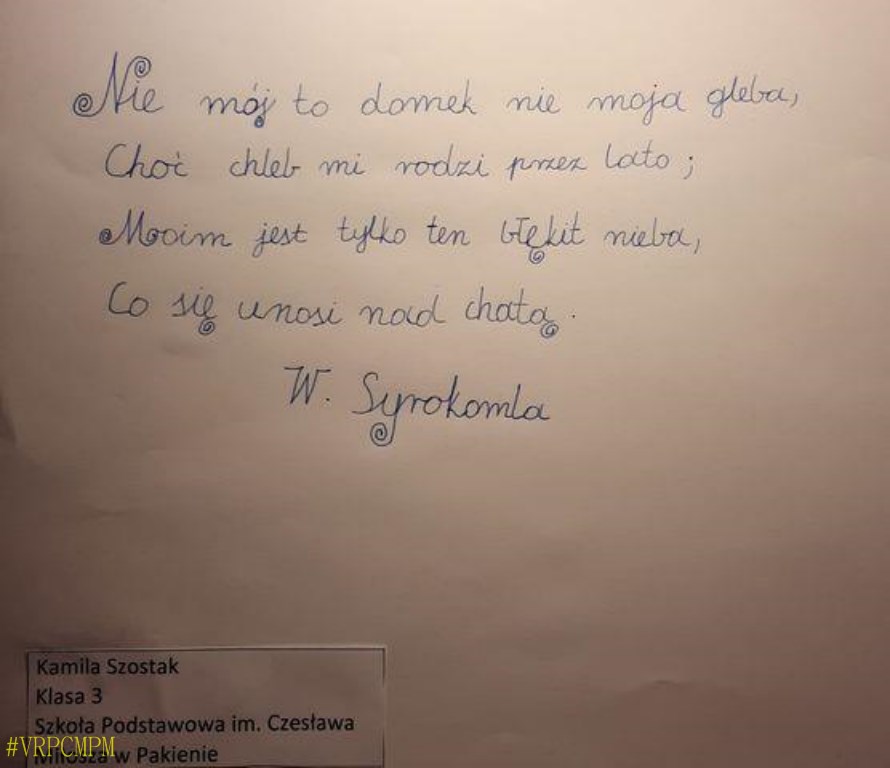 Nie mój to domek nie moja gleba,
Choć chleb mi rodzi przez lato;
Moim jest tylko ten błękit nieba,
Co się unosi nad chatą.
W. Syrokomla
Kamila Szostak
Klasa 3
Szkoła Podstawowa im. Czesława
Miłosza w Pakienie
#VRPCMPM